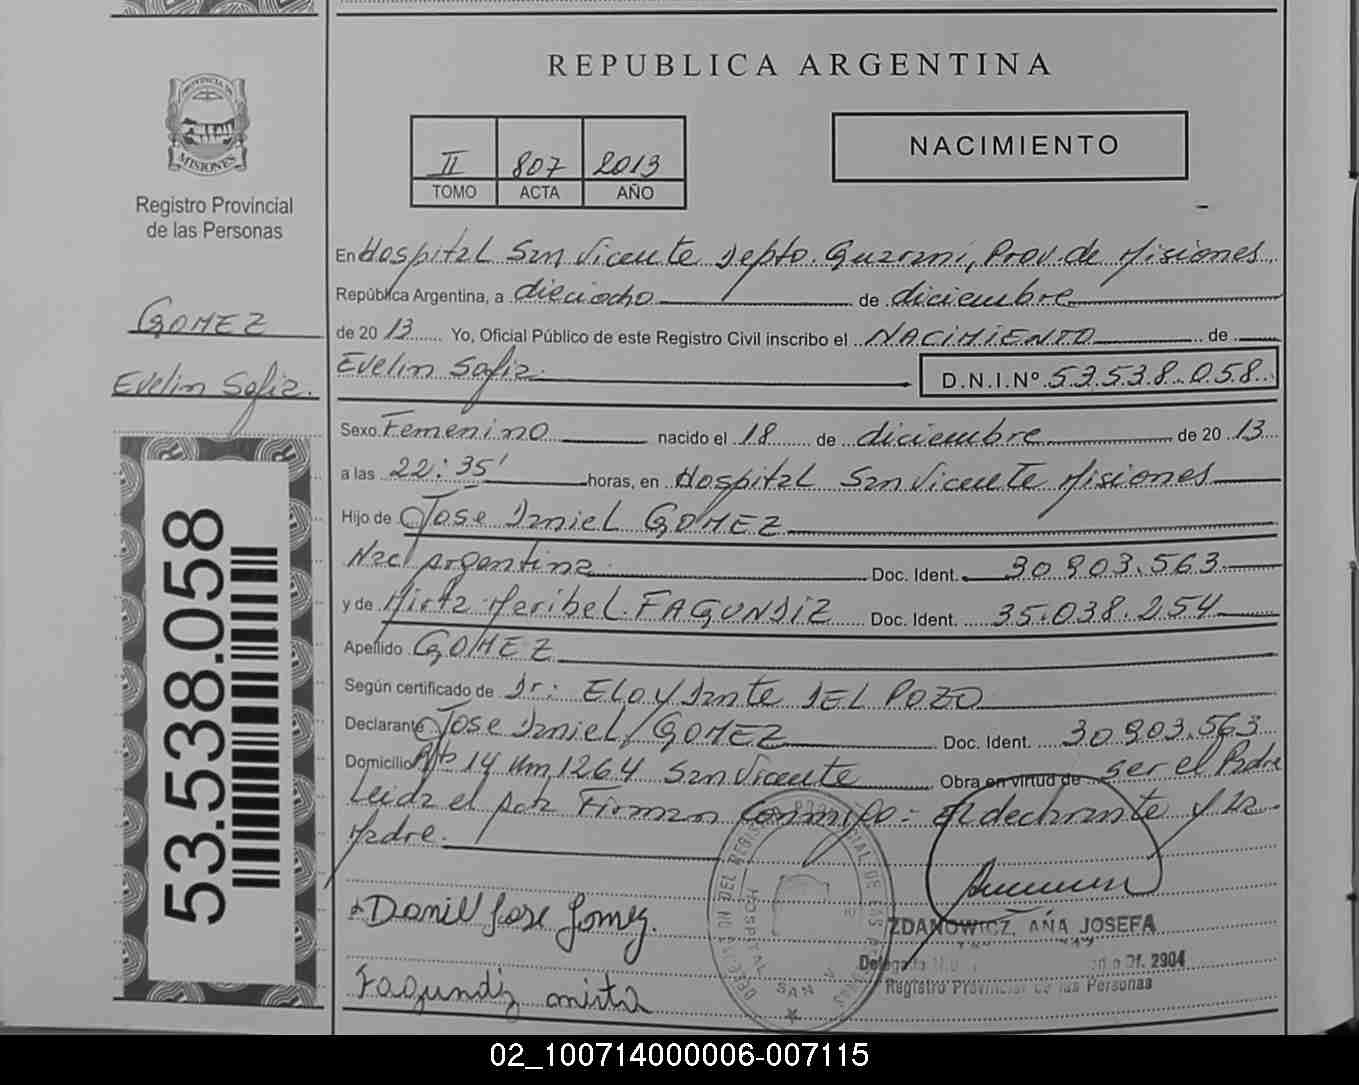 REPUBLICA ARGENTINA
PROVINCIA DE
MISIONES
Registro Provincial
de las Personas
GOMEZ
Evelin Sofia.
53.538.058
II 807 2013
TOMO ACTA AÑO
NACIMIENTO
En Hospital San Vicente Depto. Guarani, Prov. de Misiones
República Argentina, a dieciocho de diciembre
de 2013 Yo, Oficial Público de este Registro Civil inscribo el NACIMIENTO de
Evelin Sofia D.N.I.Nº 53.538.058
Sexo Femenino nacido el 18 de diciembre de 2013
a las 22:35' horas, en Hospital San Vicente Misiones
Hijo de Jose Daniel GOMEZ
Nac. Argentina Doc. Ident. 30.903.563
y de Mirta Maribel FAGUNDIZ Doc. Ident. 35.038.254
Apellido GOMEZ
Según certificado de Dr: Eloy Dante DEL POZO
Declarante Jose Daniel GOMEZ Doc. Ident. 30.903.563
Domicilio Rta 14 Km 1264 San Vicente Obra en virtud de ser el Padre
Leida el Acta Firman conmigo: El declarante y la
Madre.
Daniel Jose Gomez.
Fagundiz mirta
DELEGACION DEL REGISTRO PROVINCIAL DE LAS PERSONAS
HOSPITAL SAN
ZDANOWICZ, ANA JOSEFA
Of. 2904
Registro Provincial de las Personas
02_100714000006-007115